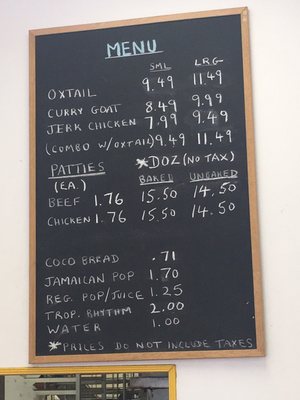 MENU
SML LRG
OXTAIL 9.49 11.49
CURRY GOAT 8.49 9.99
JERK CHICKEN 7.99 9.49
(COMBO W/OXTAIL) 9.49 11.49
PATTIES *DOZ (NO TAX)
(EA.) BAKED UNBAKED
BEEF 1.76 15.50 14.50
CHICKEN 1.76 15.50 14.50
COCO BREAD .71
JAMAICAN POP 1.70
REG. POP/JUICE 1.25
TROP. RHYTHM 2.00
WATER 1.00
*PRICES DO NOT INCLUDE TAXES